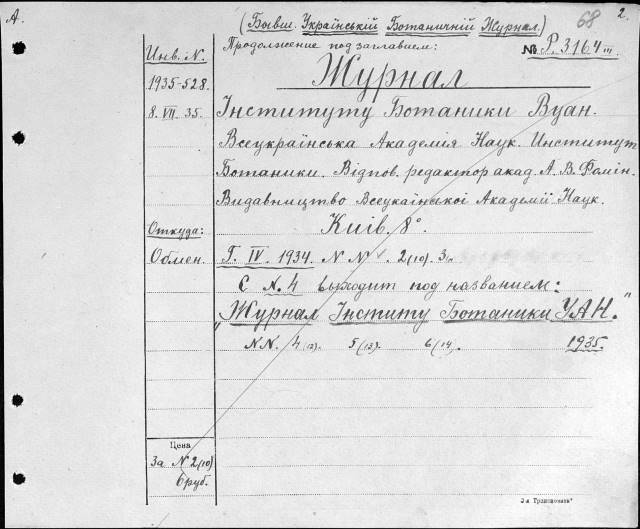 А.
(Бывш. Український Ботаничній Журнал.)
68
2.
Инв. N.
Продолжение под заглавием:
№ Р.3164 III
1935-528.
Журнал
8. VII. 35.
Інституту Ботаники Вуан.
Всеукраїнська Академія Наук. Институт
Ботаники. Відпов. редактор акад. А. В. Фомін.
Видавництво Всеукаїнської Академії Наук.
Київ. 8°.
Откуда:
Обмен.
Г. IV. 1934. N N 2(10). 3
С N. 4 выходит под названием:
"Журнал Інститу Ботаники УАН."
NN. 4(12). 5(13). 6(14). 1935.
Цена
За N 2(10)
6 руб.